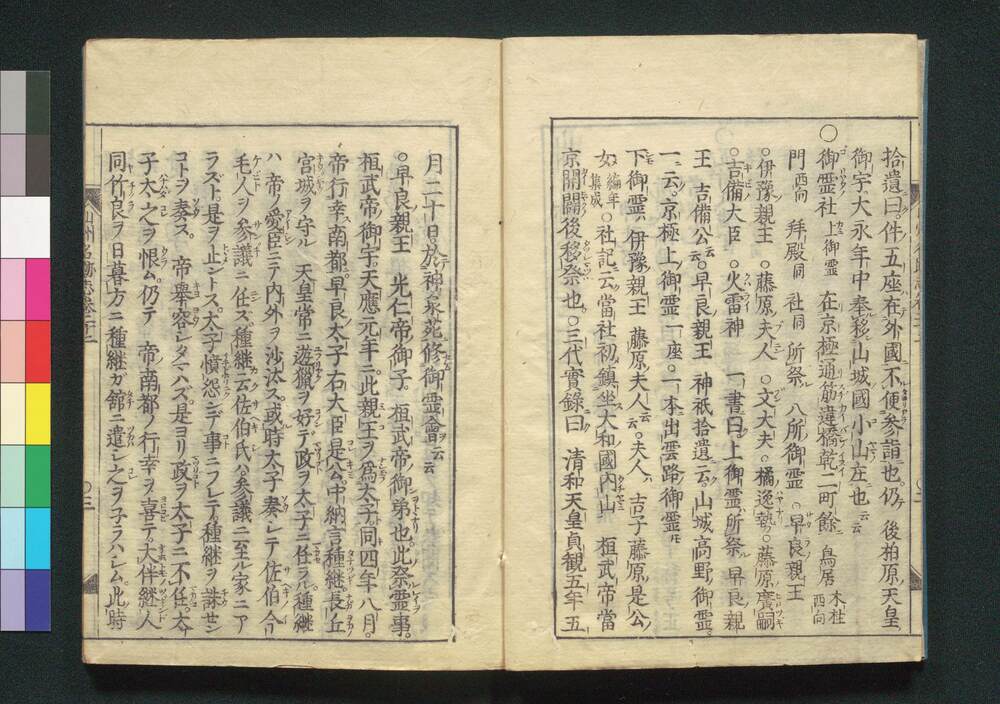 拾遺曰。件五座在外國不便参詣也。仍 後柏原天皇
御宇大永年中奉移山城國小山庄也云云
○御霊社 上御霊 在京極通筋違橋乾二町餘 鳥居 木柱 西向
門 西向 拝殿 同 社 同 所祭 八所御霊 ○早良親王
○伊豫親王 ○藤原夫人 ○文大夫 ○橘逸勢 ○藤原廣嗣
○吉備大臣 ○火雷神 一書曰。上御霊所祭 早良親
王 吉備公云。○早良親王 神祇拾遺云。山城高野御霊。
一ニ云。京極上御霊一座。一本出雲路御霊ト
下御霊。伊豫親王 藤原夫人云云。○夫人ハ吉子藤原是公ノ
女 編年集成 ○社記云當社初鎮坐大和國内山 桓武帝當
京開闢後移祭也。○三代實録曰 清和天皇貞観五年五
月二十日於神泉苑修御霊會云云
○早良親王 光仁帝御子。 桓武帝御弟也。此祭霊事。
桓武帝御宇天應元年ニ此親王ヲ為太子。同四年八月。
帝行幸南都。早良太子右大臣是公。中納言種継。長丘
宮城ヲ守ル 天皇常ニ遊猟ヲ好テ政ヲ太子ニ任ラル種継
ハ 帝ノ愛臣ニテ内外ヲ沙汰ス。或時太子 奏シテ佐伯今
毛人ヲ参議ニ任ズ。種継云佐伯氏ハ参議ニ至ル家ニア
ラズト。是ヲ止ントス。太子憤怨シデ事ニフレテ種継ヲ誅セン
コトヲ奏ス。 帝擧容シタマハズ。是ヨリ政ヲ太子ニ不任。太
子太之ヲ恨ム。仍テ 帝南都ノ行幸ヲ喜テ。大伴継人
同竹良ヲ日暮方ニ種継ガ館ニ遣シ之ヲ子ラハシム。此時
山州名跡志巻二十二
○三